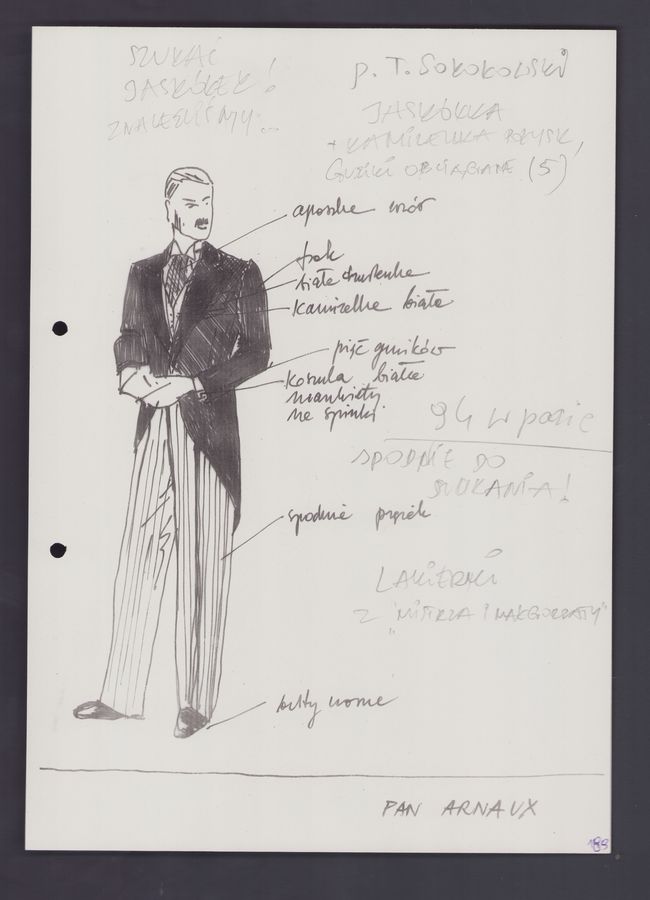 SZUKAĆ
JASKÓŁEK!
ZNALEŹLIŚMY...
P. T. SOKOKOLSKI
JASKÓŁKA
+ KAMIZELKA POŁYSK,
GUZIKI OBCIĄGANE (5)
frak
kamizelka biała
pięć guzików
koszula biała
mankiety
na spinki
94 w pasie
SPODNIE DO
SZUKANIA!
spodnie prążek
LAKIERKI
Z "MISTRZA I MAŁGORZATY"
buty
PAN ARNAUX
189